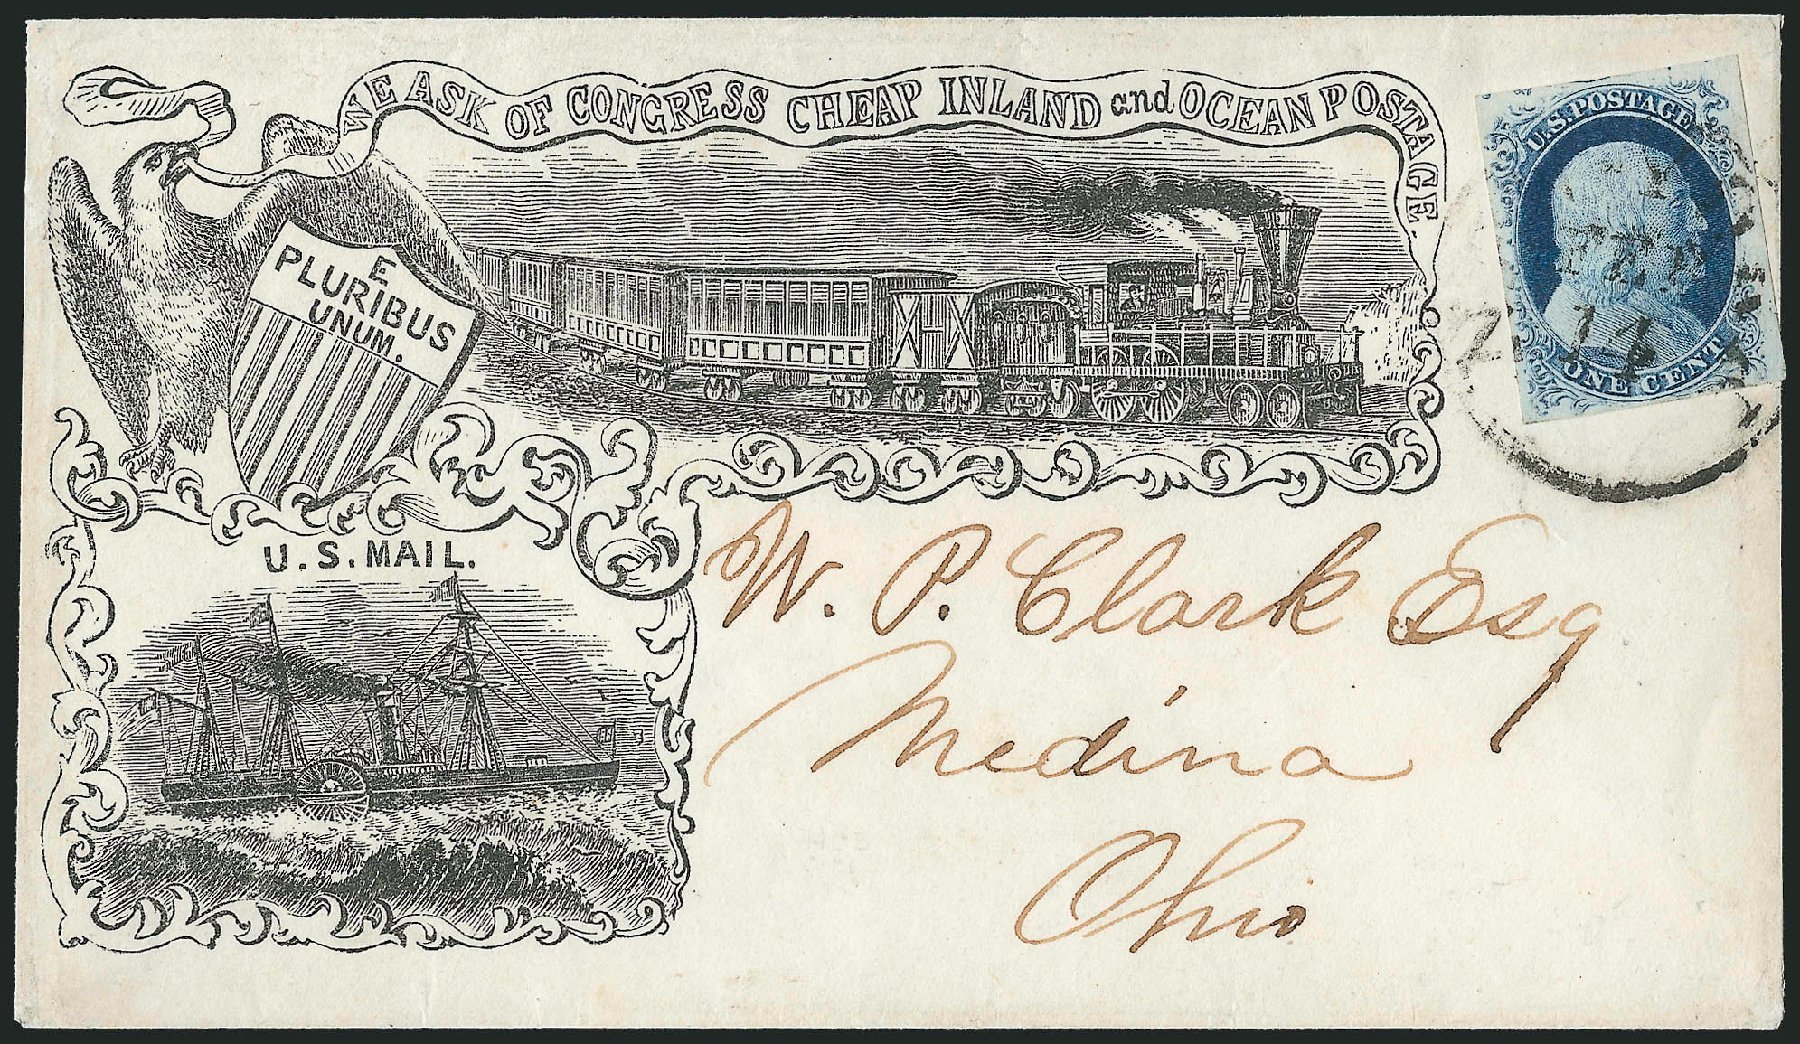 WE ASK OF CONGRESS CHEAP INLAND and OCEAN POSTAGE.
E
PLURIBUS
UNUM.
U.S. POSTAGE
14
ONE CENT
U.S. MAIL.
W. P. Clark Esq
Medina
Ohio